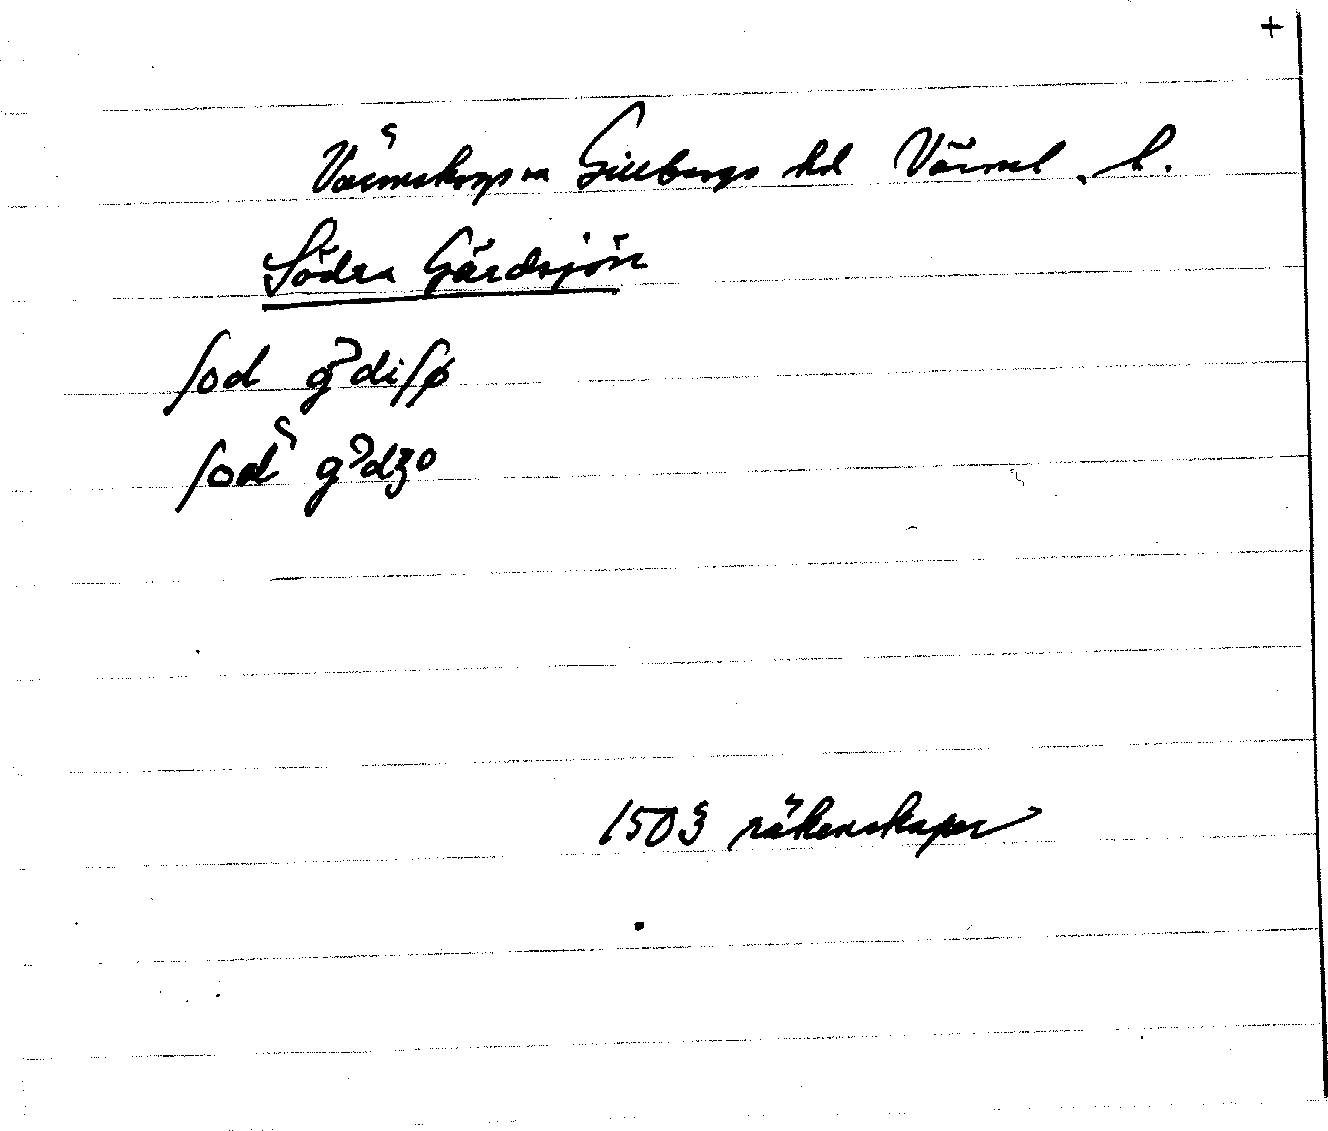 +
Värmskogs sn Gillbergs hd Värml. l.
Södra Gärdsjön
ſod gꝛdiſø
ſod gꝛdʒo
1503 räkenskaper